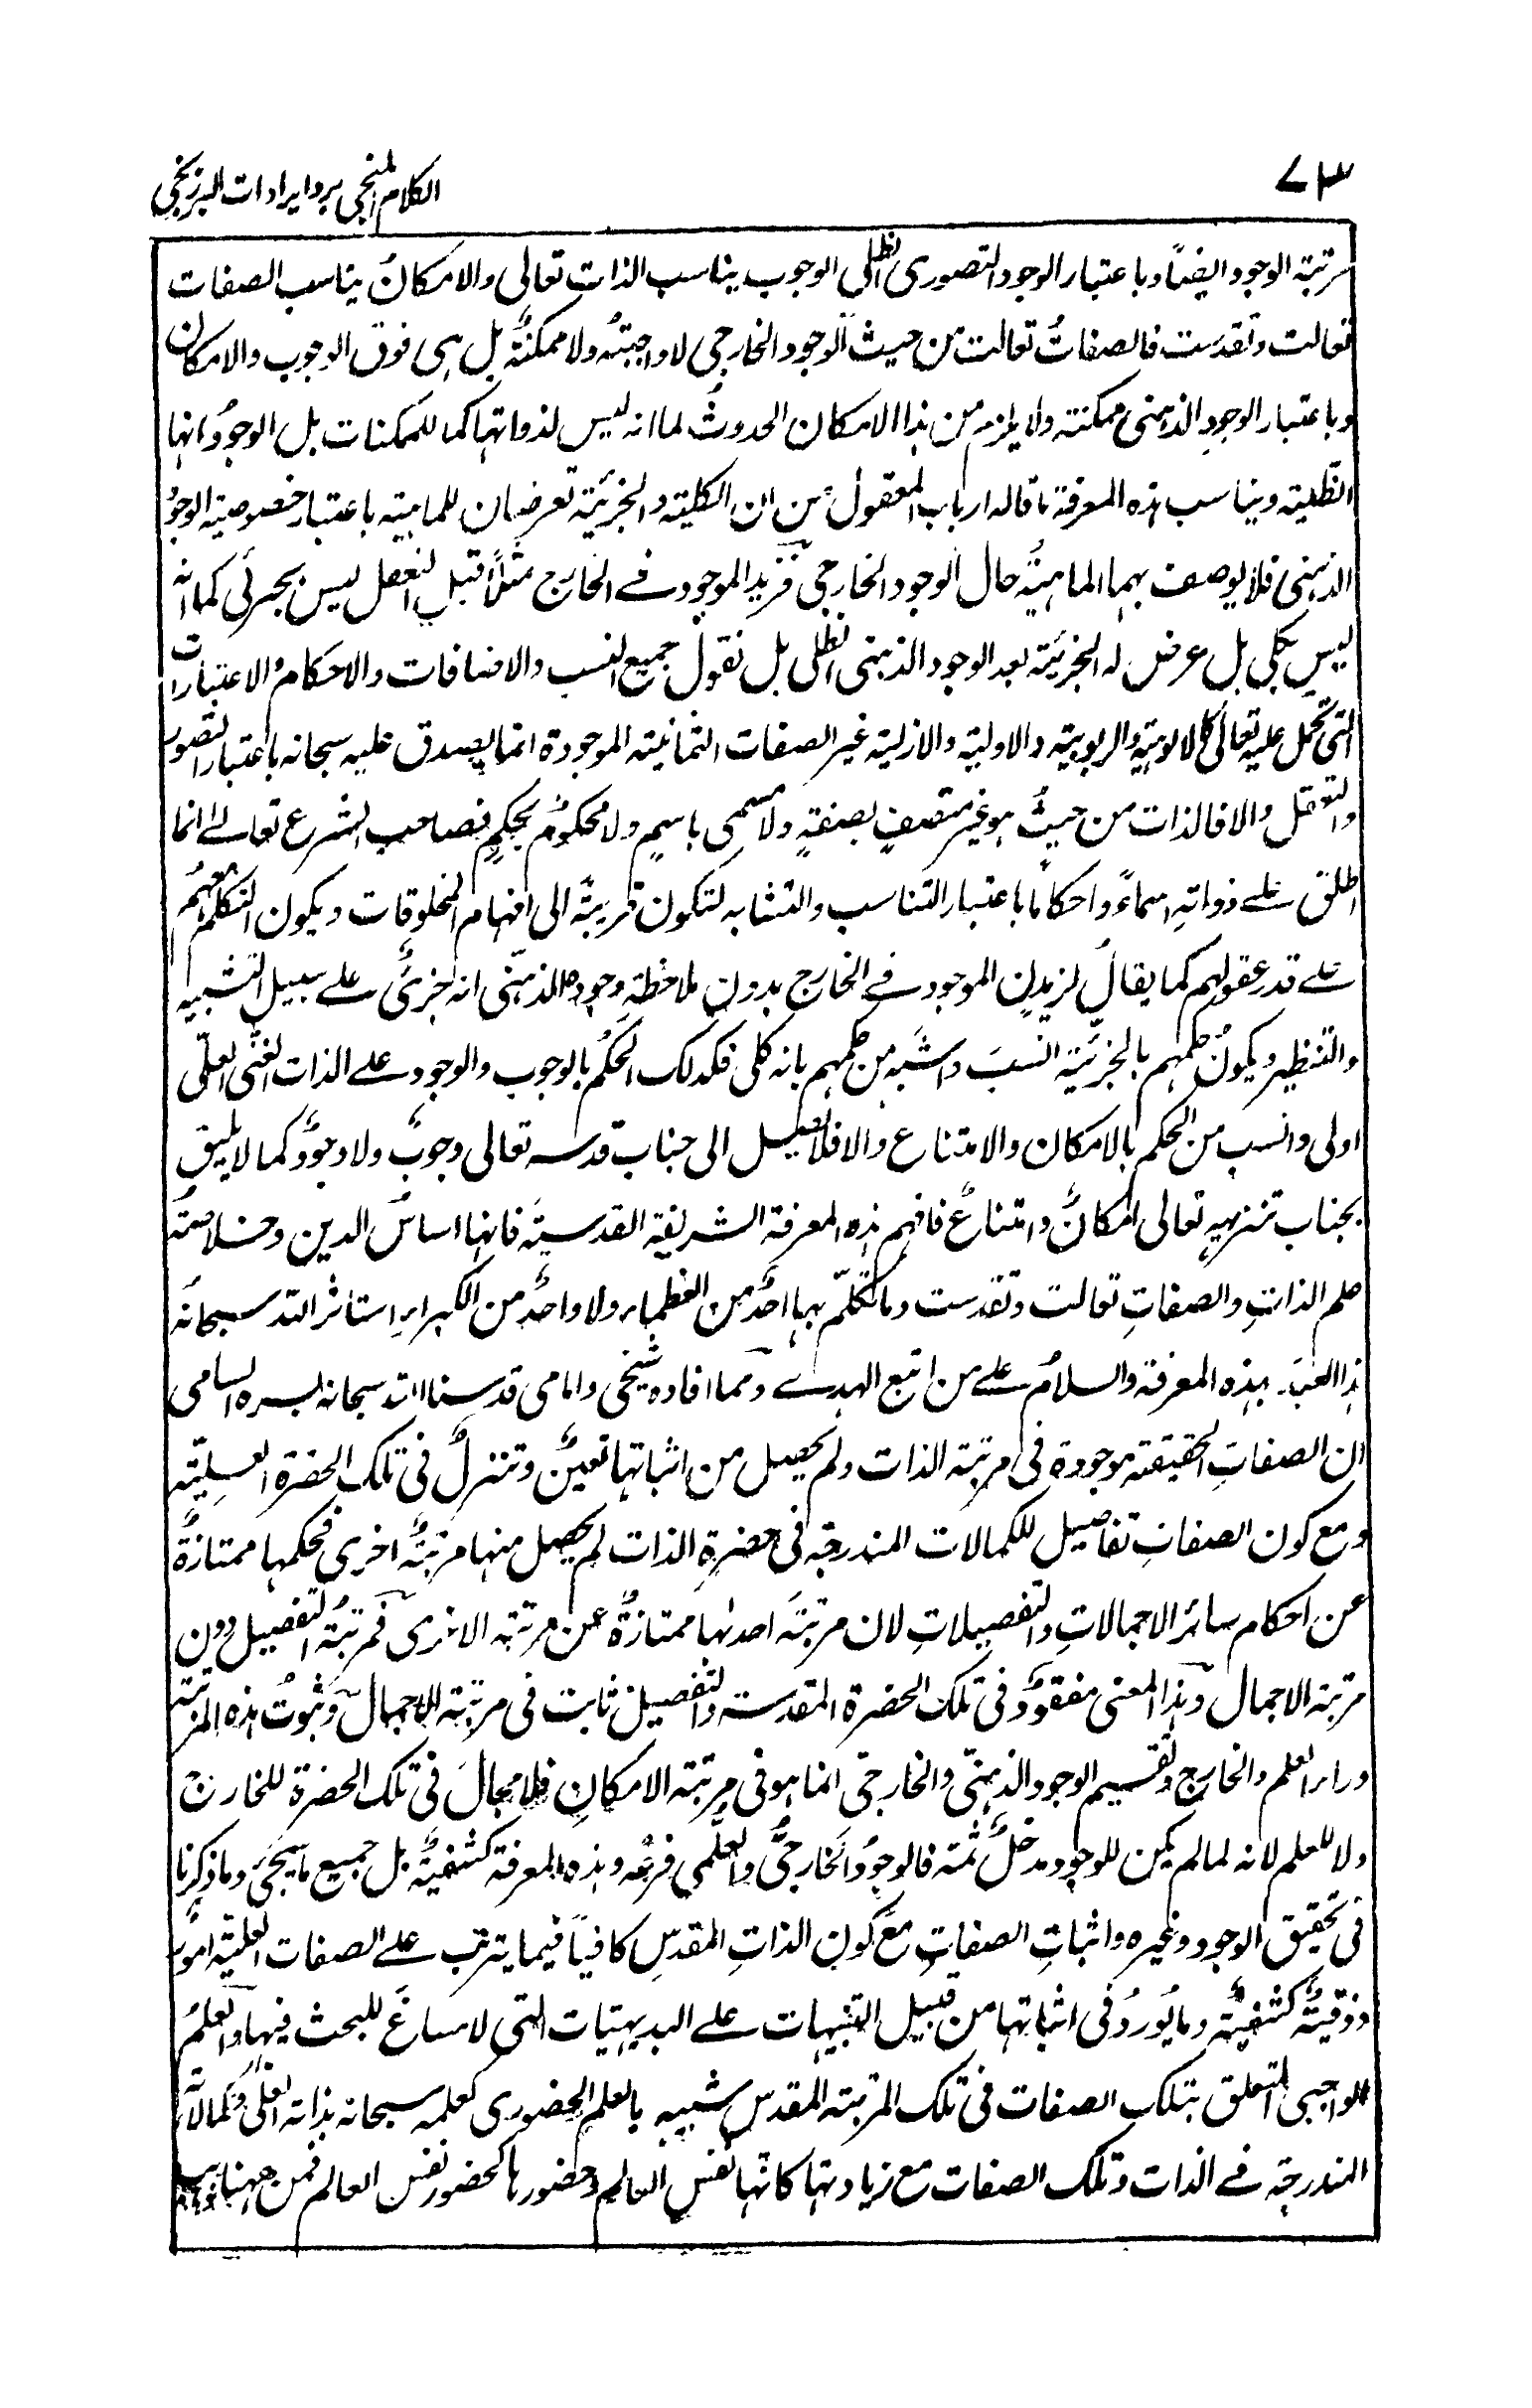 ٧٣
الكلام المنجى برد ايرادات البرزنجى
مرتبة الوجود ايضاً وباعتبار الوجود التصورى الظلى الوجوب يناسب الذات تعالى والامكانُ يناسب الصفات
تعالت وتقدست فالصفاتُ تعالت من حيث الوجود الخارجى لا واجبةٌ ولا ممكنةٌ بل هى فوق الوجوب والامكان
وباعتبار الوجودِ الذهنى ممكنة ولا يلزم من هذا الامكان الحدوثُ لما انه ليس لذواتها كما للممكنات بل الوجودُ انها
الظلية ويناسب هذه المعرفة ما قاله ارباب المعقول من ان الكلية والجزئية تعرضان للماهية باعتبار خصوصية الوجود
الذهنى فلا يوصف بهما الماهيةُ حال الوجود الخارجى فزيد الموجود فے الخارج مثلاً قبل التعقل ليس بجزئى كما انه
ليس بكلى بل عرض له الجزئية بعد الوجود الذهنى الظلى بل نقول جميع النسب والاضافات والاحكام والاعتبارات
التى تحمل عليه تعالى كالالوهية والربوبية والاولية والازلية غير الصفات الثمانية الموجودة انما يصدق عليه سبحانه باعتبار التصور
والتعقل والا فالذات من حيث هو غير متصفٍ بصفةٍ ولا مسمى باسمٍ ولا محكومٌ بحكمٍ فصاحب الشرع تعالے انما
اطلق علے ذواته اسماءً واحكاما باعتبار التناسب والتشابه لتكون قريبةً الى افهام المخلوقات ويكون التكلم معهم
علے قدر عقولهم كما يقال لزيدٍ الموجود فے الخارج بدون ملاحظةِ وجوده الذهنى انه جزئى علے سبيل التشبيه
والتنظير ويكونُ حكمهم بالجزئية انسبَ واشبه من حكمهم بانه كلى فكذلك الحكم بالوجوب والوجود علے الذات الغنى العلى
اولى وانسب من الحكم بالامكان والامتناع والا فلا يصل الى جناب قدسه تعالى وجوبٌ ولا وجودٌ كما لا يليق
بجناب تنزيهه تعالى امكانٌ وامتناعٌ فافهم هذه المعرفة الشريفة القدسية فانها اساسُ الدين وخلاصةُ
علم الذاتِ والصفاتِ تعالت وتقدست وما تكلّم بها احدٌ من العظماء ولا واحدٌ من الكبراء استاثر الله سبحانه
هذا العبدَ بهذه المعرفة والسلام علے من اتبع الهدے ومما افاده شيخى وامامى قدسنا الله سبحانه بسره السامى
ان الصفاتِ الحقيقية موجودة فى مرتبة الذات ولم يحصل من اثباتها تعينٌ وتنزلٌ فى تلك الحضرة العلية
ومع كون الصفات تفاصيل للكمالات المندرجة فى حضرة الذات لم يحصل منها مرتبةٌ اخرى فحكمها ممتازةٌ
عن احكام سائر الاجمالاتِ والتفصيلاتِ لان مرتبةَ احدها ممتازةٌ عن مرتبة الاخرى فمرتبةُ التفصيل دون
مرتبة الاجمال وهذا المعنى مفقودٌ فى تلك الحضرة المقدسة والتفصيل ثابت فى مرتبة الاجمال وثبوتُ هذه المرتبة
وراء العلم والخارج وتقسيم الوجود الذهنى والخارجى انما هو فى مرتبة الامكان فلا مجالَ فى تلك الحضرة للخارج
ولا للعلم لانه لما لم يكن للوجود مدخلٌ ثمه فالوجودُ الخارجىُّ والعلمى فرعُه وهذه المعرفة كشفيةٌ بل جميع ما يجئ وما ذكرنا
فى تحقيق الوجود وغيره واثباتِ الصفاتِ مع كون الذاتِ المقدسِ كافياً فيما يترتب علے الصفات العلية امورٌ
ذوقيةٌ كشفيةٌ وما يُورد فى اثباتها من قبيل التنبيهات علے البديهيات التى لا مساغَ للبحث فيها والعلمُ
الواجبى المتعلق بتلك الصفات فى تلك المرتبة المقدس شبيه بالعلم الحضورى كعلمه سبحانه بذاته العلى وكمالاته
المندرجة فے الذات وتلك الصفات مع زيادتها كانها نفس العالم وحضورها كحضور نفس العالم فمن ههنا